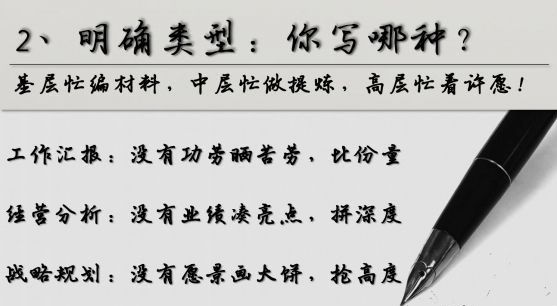 2、明确类型：你写哪种？
基层忙编材料，中层忙做提炼，高层忙着许愿！
工作汇报：没有功劳晒苦劳，比份量
经营分析：没有业绩凑亮点，拼深度
战略规划：没有愿景画大饼，抢高度